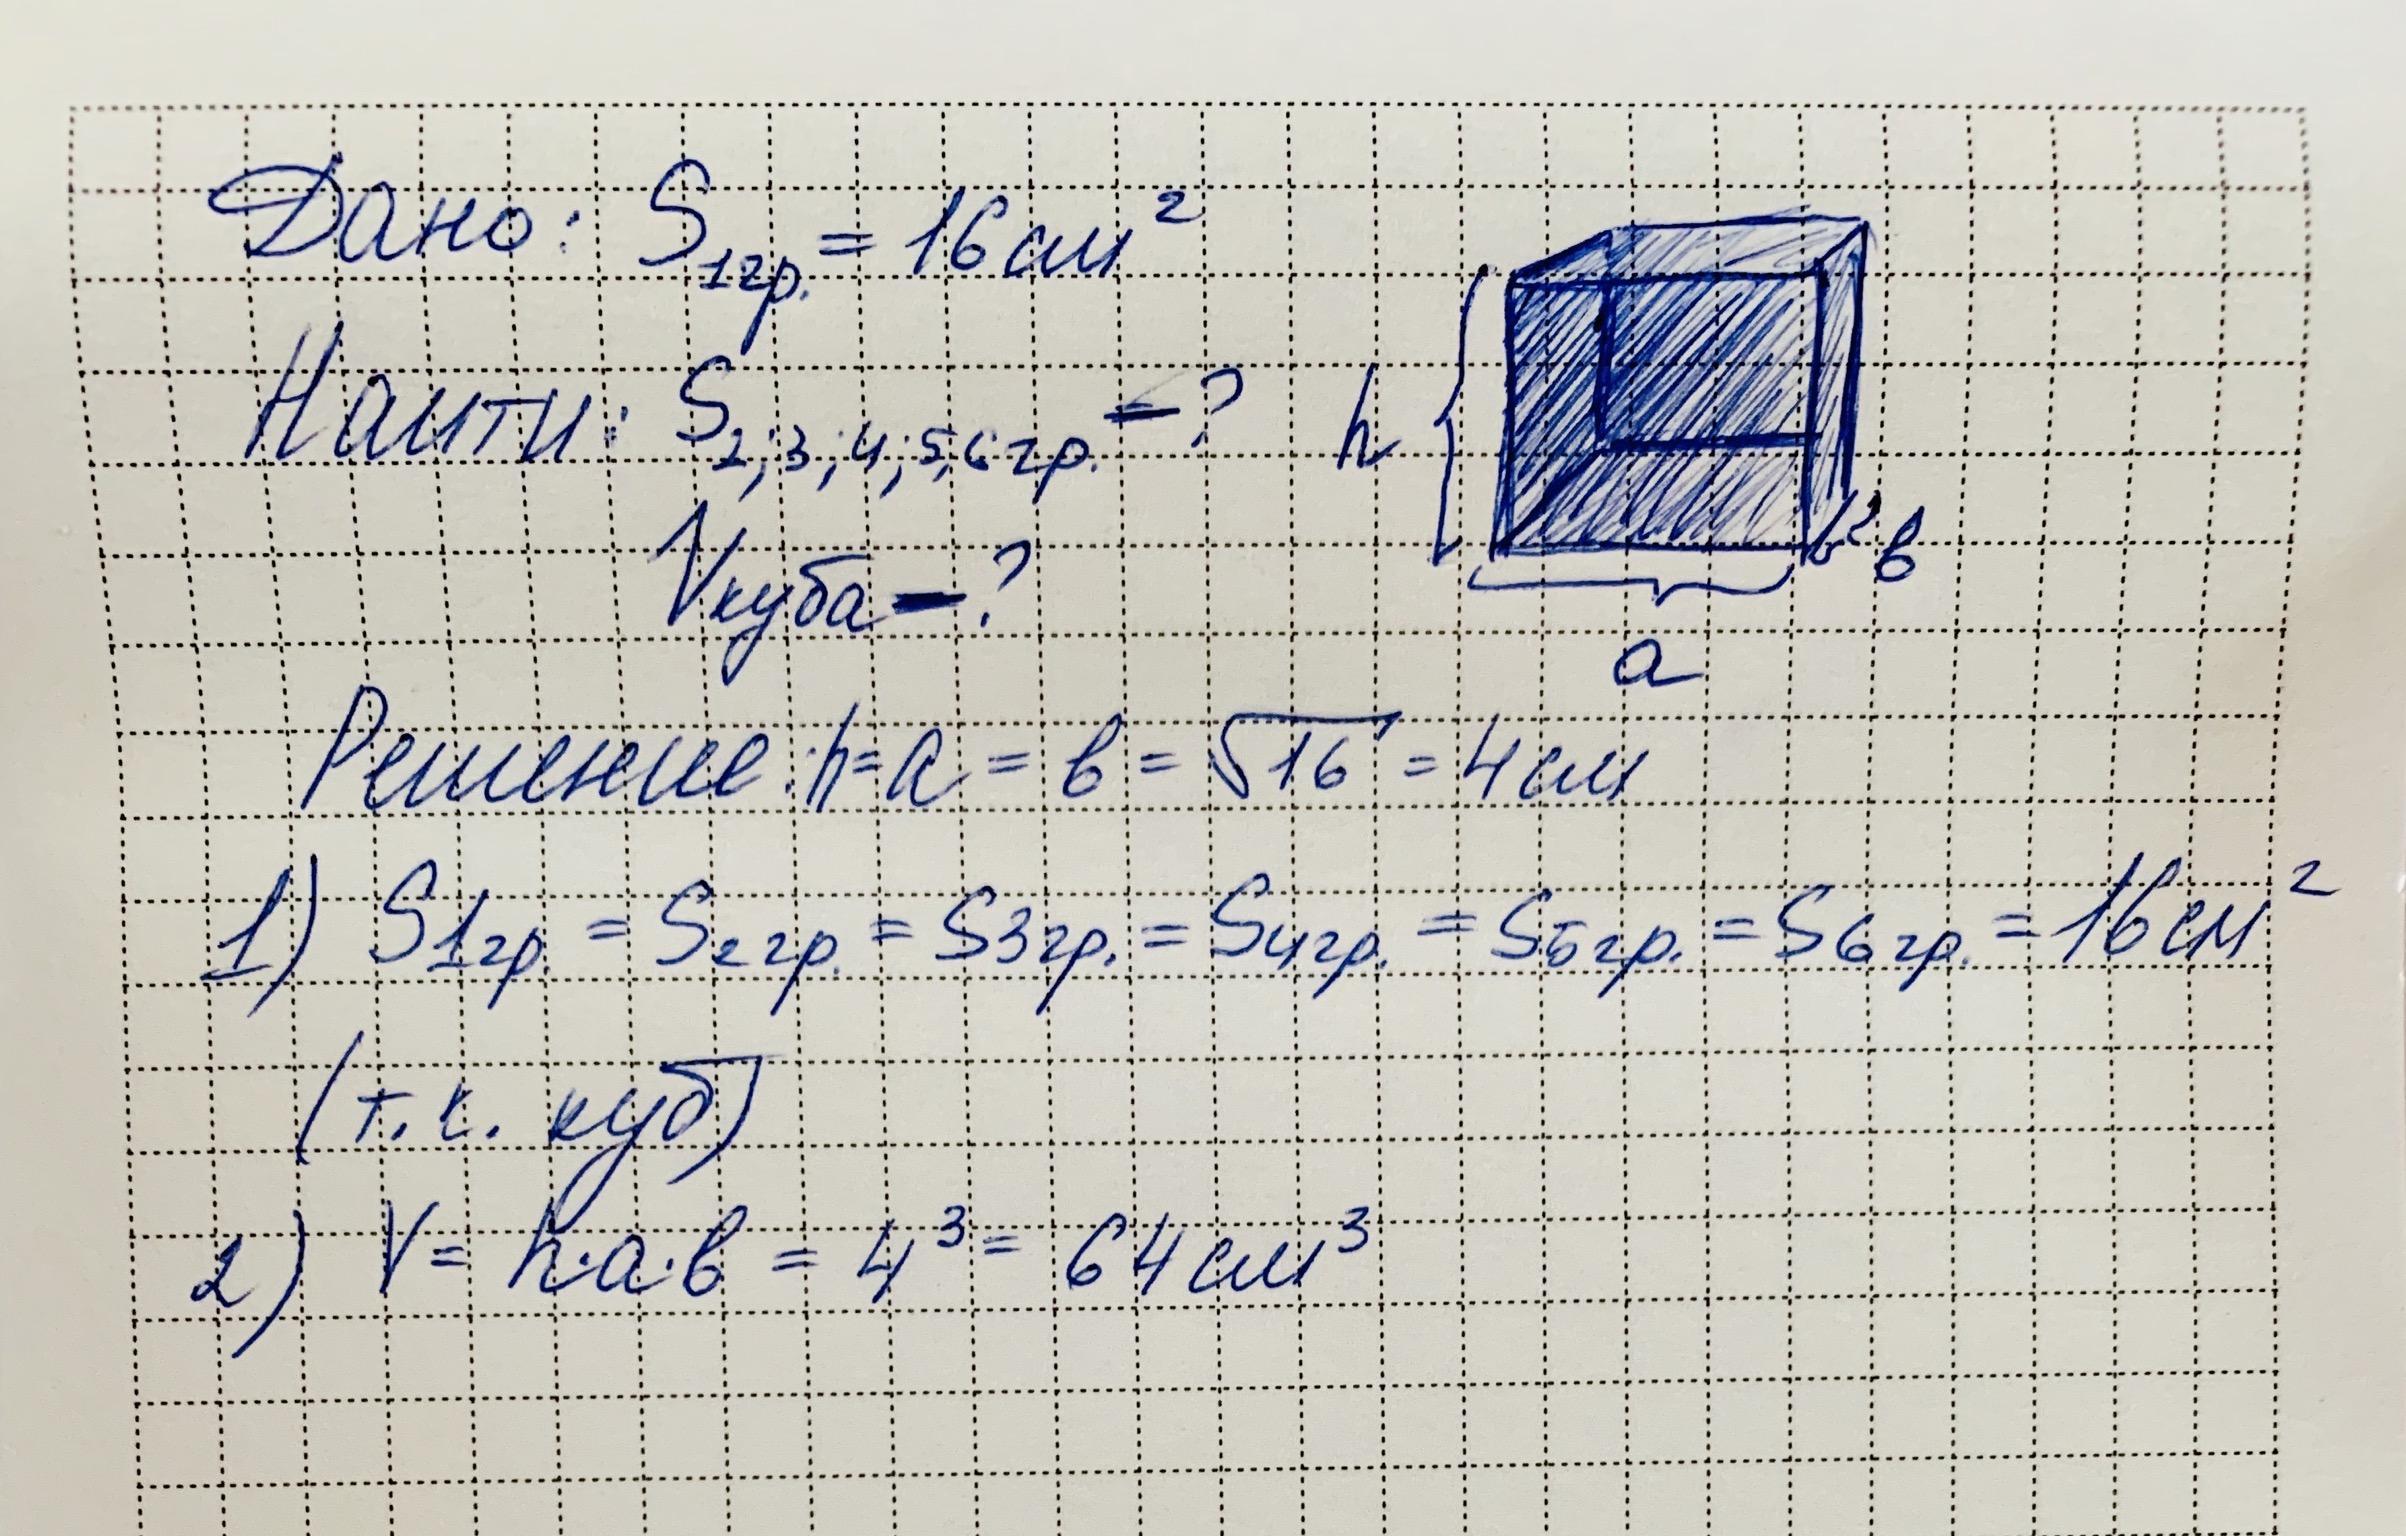 Дано: S₁гр. = 16 см²
Найти: S₂;₃;₄;₅;₆ гр. – ?
Vкуба – ?
h
в
a
Решение: h = a = в = √16 = 4 см
1) S1гр. = S2гр. = S3гр. = S4гр. = S5гр. = S6гр. = 16 см²
(т.к. куб)
2) V = h·a·в = 4³ = 64 см³